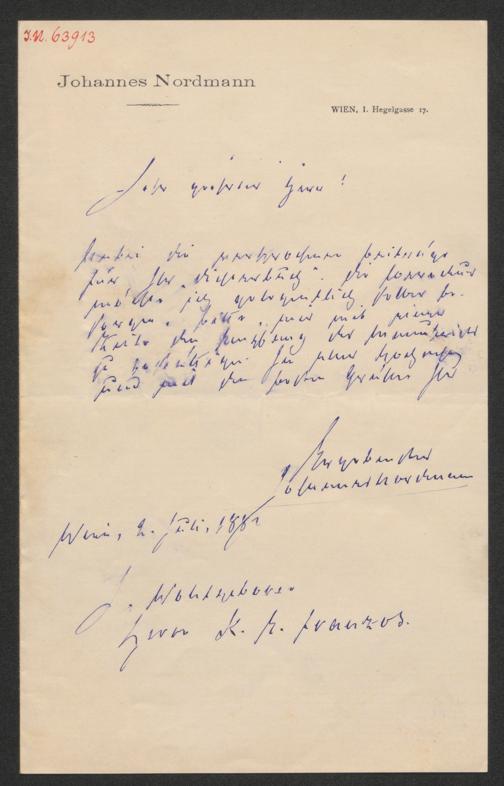 I.N. 63913
Johannes Nordmann
WIEN, I. Hegelgasse 17.
Sehr geehrter Herr!
die versprochenen Beiträge
für Ihr „Dichterbuch“. Die Correctur
möchte ich gelegentlich selber be-
sorgen. Bitte, mir mit einer
Karte den Empfang der Manuscripte
zu bestätigen. In aller Hochachtung
und mit den besten Grüßen Ihr
Ergebenster
Johannes Nordmann
Wien, 2. Juli, 1882
S. Wohlgeboren
Herrn K. E. Franzos.